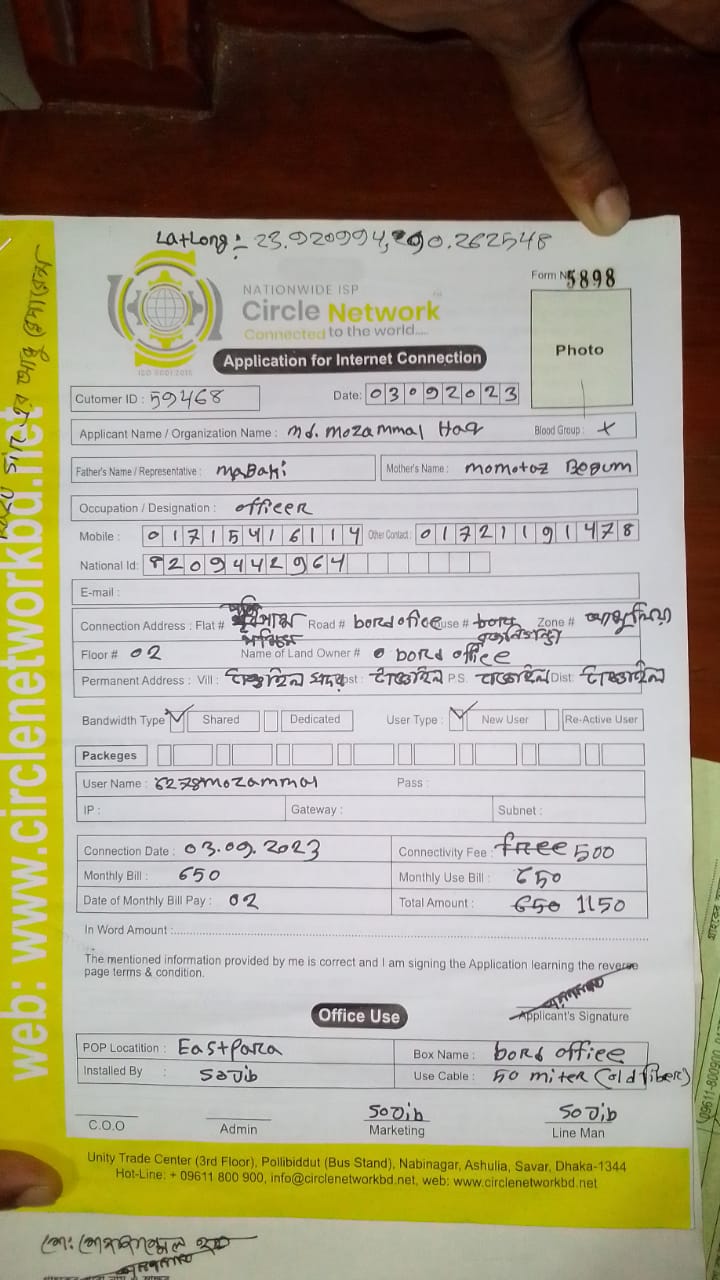 Lat Long:- 23.920994, 90.262548
NATIONWIDE ISP
Circle Network
Connected to the world....
ISO 9001:2015
Form N 5898
Photo
Application for Internet Connection
Cutomer ID : 59468 Date: 03092023
Applicant Name / Organization Name : Md. Mozammal Haq Blood Group : X
Father's Name / Representative : Mother's Name : momotaz Begum
Occupation / Designation : officer
Mobile : 01715416114 Other Contact : 01721191478
National Id: 8209442964
E-mail :
Connection Address : Flat # Road # bord office use # bord Zone #
Floor # 02 Name of Land Owner # bord office
Permanent Address : Vill : টাঙ্গাইল সদর ost : টাঙ্গাইল P.S. টাঙ্গাইল Dist: টাঙ্গাইল
Bandwidth Type Shared Dedicated User Type : New User Re-Active User
Packeges
User Name : 6278mozammal Pass :
IP : Gateway : Subnet :
Connection Date : 03.09.2023 Connectivity Fee : free 500
Monthly Bill : 650 Monthly Use Bill : 650
Date of Monthly Bill Pay : 02 Total Amount : 650 1150
In Word Amount :
The mentioned information provided by me is correct and I am signing the Application learning the reverse
page terms & condition.
Applicant's Signature
Office Use
POP Locatition : Eastpara Box Name : bord office
Installed By : Sojib Use Cable : 50 miter (old fiber)
Sojib Sojib
C.O.O Admin Marketing Line Man
Unity Trade Center (3rd Floor), Pollibiddut (Bus Stand), Nabinagar, Ashulia, Savar, Dhaka-1344
Hot-Line: + 09611 800 900, info@circlenetworkbd.net, web: www.circlenetworkbd.net
web: www.circlenetworkbd.net
মো: মোজাম্মেল হক